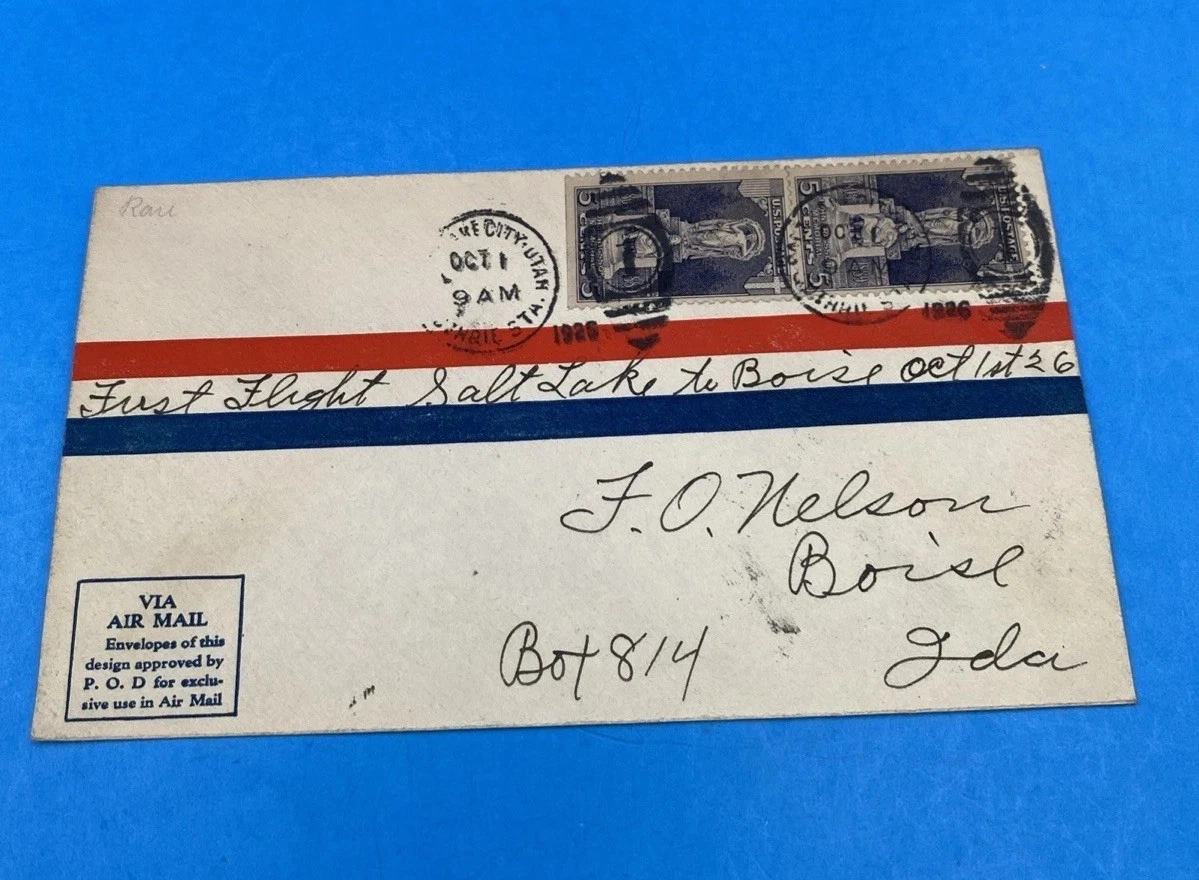 Rau
KE CITY, UTAH
OCT 1
9 AM
THRIE STA.
1926
5 CENTS 5
U.S. POSTAGE
5 CENTS 5
U.S. POSTAGE
1926
First Flight Salt Lake to Boise Oct 1st 26
F. O. Nelson
Boise
Box 814 Ida
VIA
AIR MAIL
Envelopes of this
design approved by
P. O. D for exclu-
sive use in Air Mail